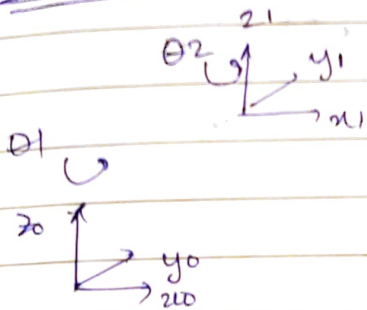 z1
θ2
y1
x1
θ1
z0
y0
x0